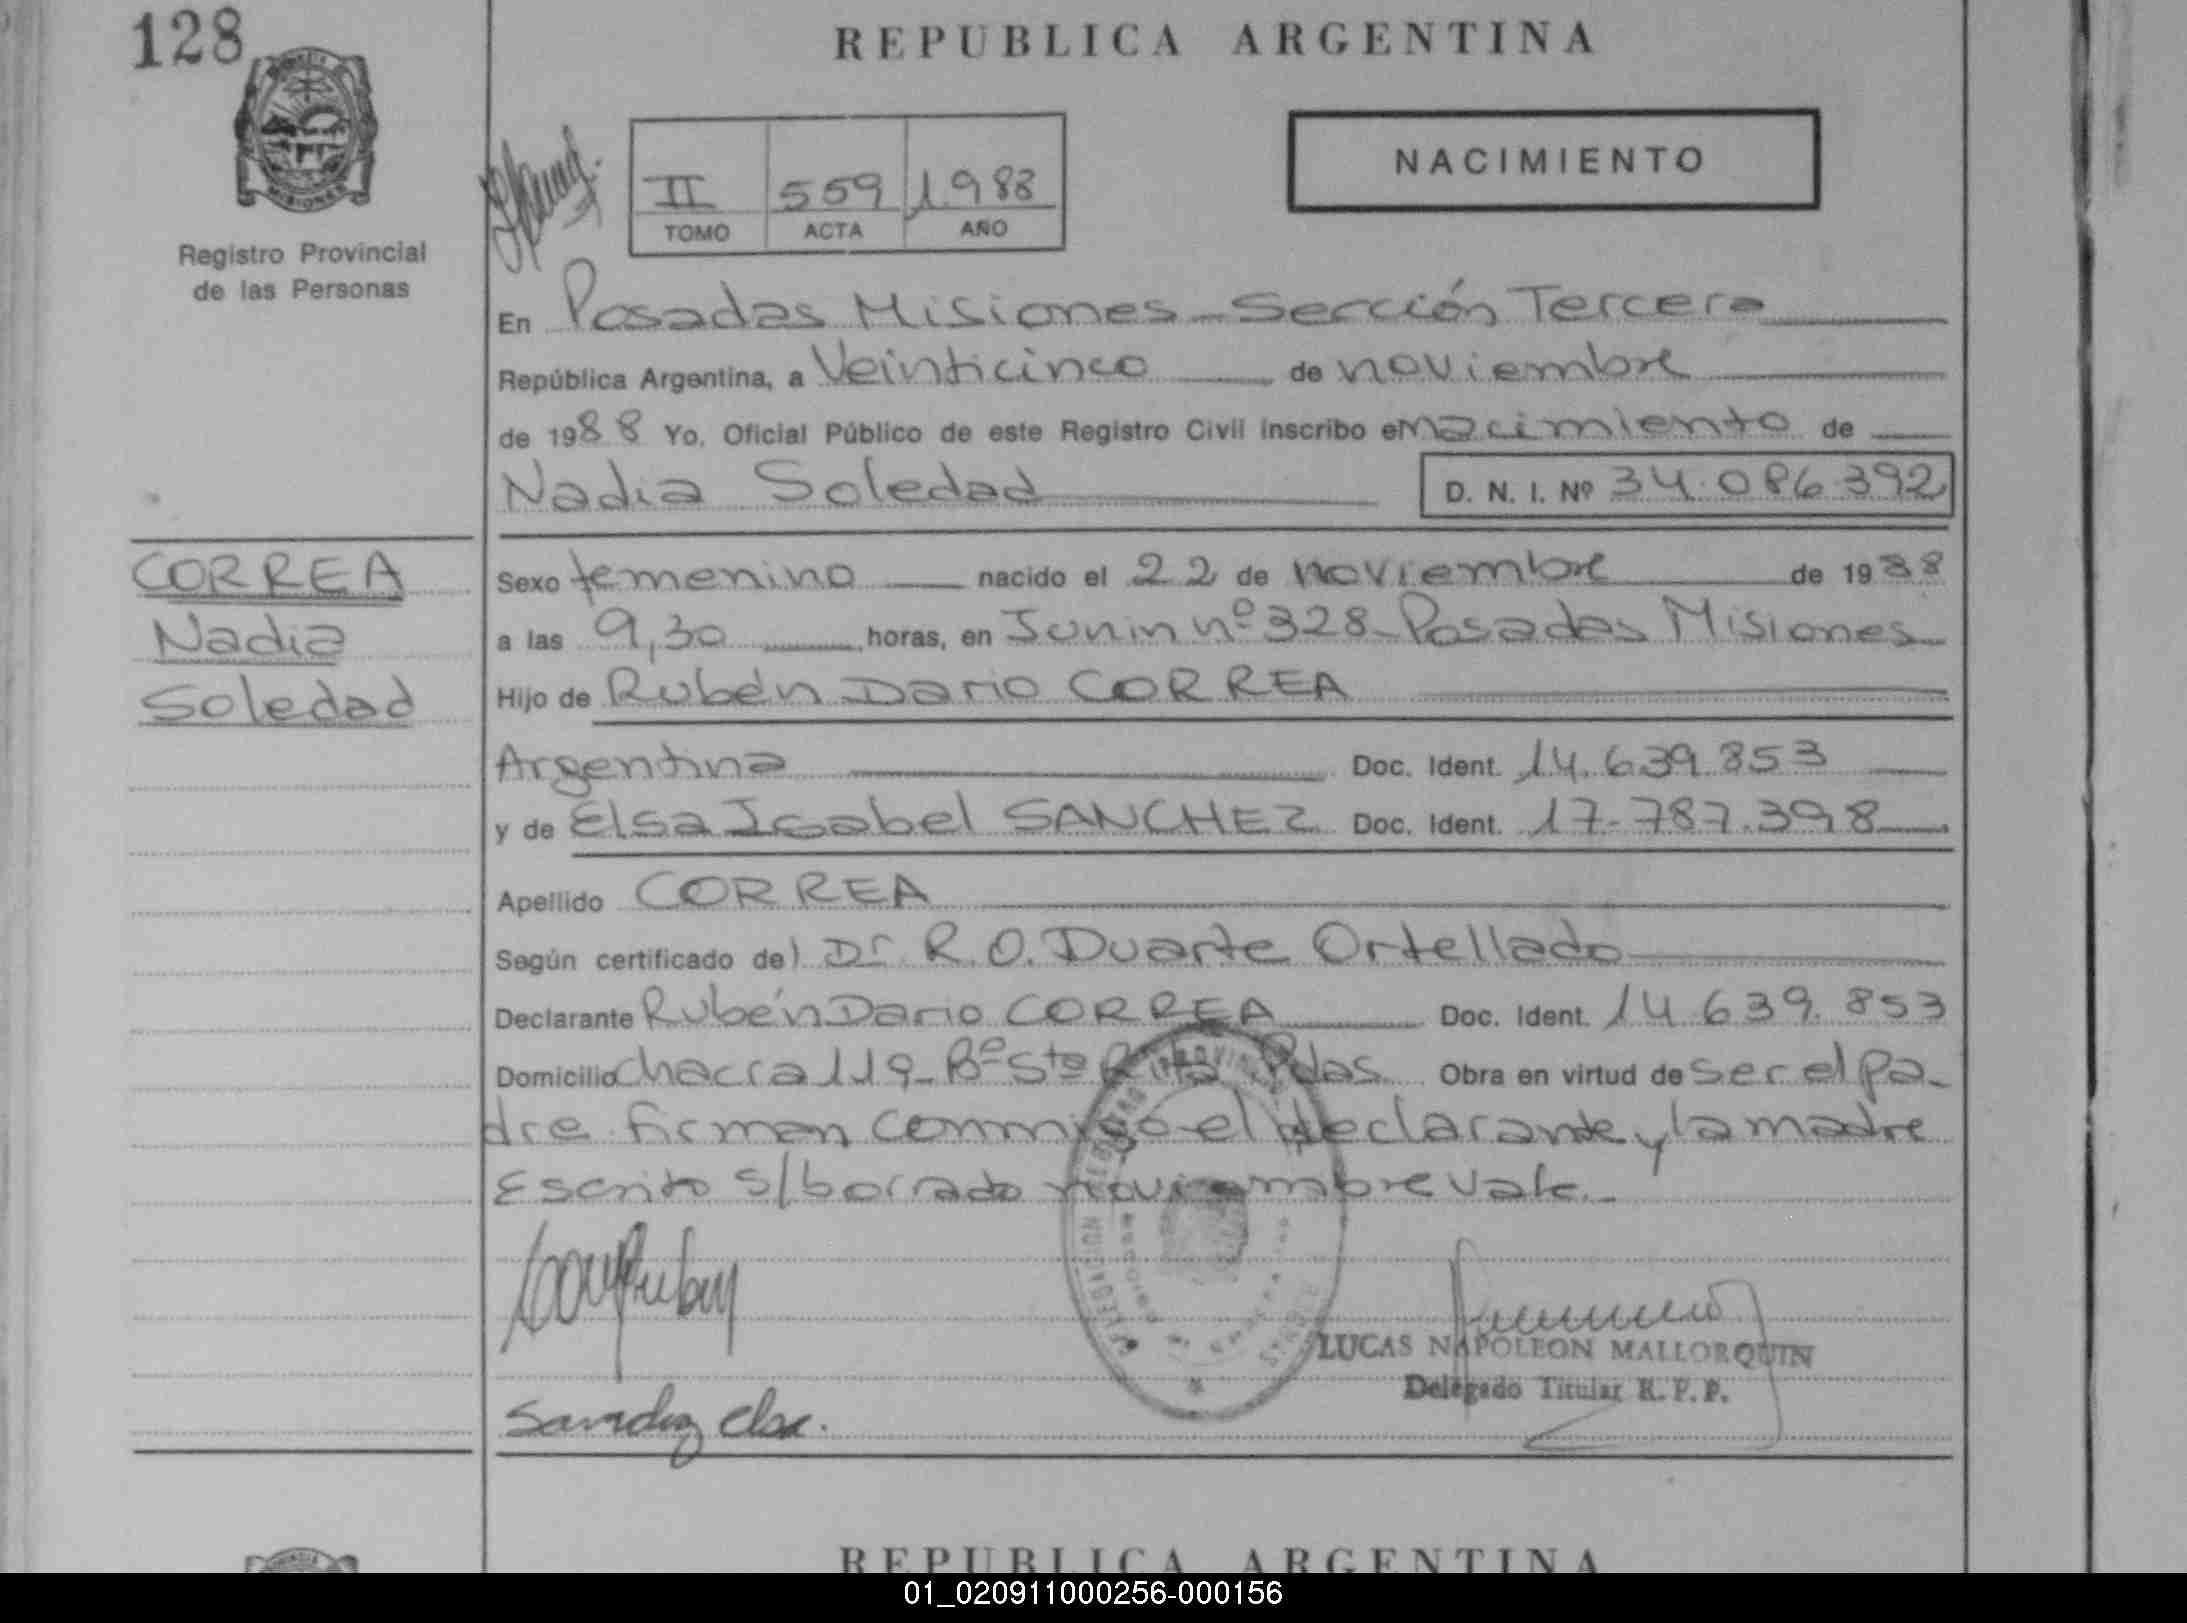 128
REPUBLICA ARGENTINA
NACIMIENTO
II 559 1.988
TOMO ACTA AÑO
Registro Provincial
de las Personas
En Posadas Misiones - Sección Tercera
República Argentina, a Veinticinco de noviembre
de 1988 Yo, Oficial Público de este Registro Civil inscribo el nacimiento de
Nadia Soledad D. N. I. Nº 34.086.392
CORREA
Nadia
Soledad
Sexo femenino nacido el 22 de noviembre de 1988
a las 9,30 horas, en Junin nº 328 - Posadas Misiones
Hijo de Rubén Dario CORREA
Argentina Doc. Ident. 14.639.853
y de Elsa Isabel SANCHEZ Doc. Ident. 17.787.398
Apellido CORREA
Según certificado del Dr R.O. Duarte Ortellado
Declarante Rubén Dario CORREA Doc. Ident. 14.639.853
Domicilio chacra 119 - Bº Sta Rita Pdas. Obra en virtud de ser el pa-
dre firman conmigo el declarante y la madre
Escrito s/borrado noviembre vale.-
Sanchez Elsa.
LUCAS NAPOLEON MALLORQUIN
Delegado Titular R. P. P.
REPUBLICA ARGENTINA
01_020911000256-000156